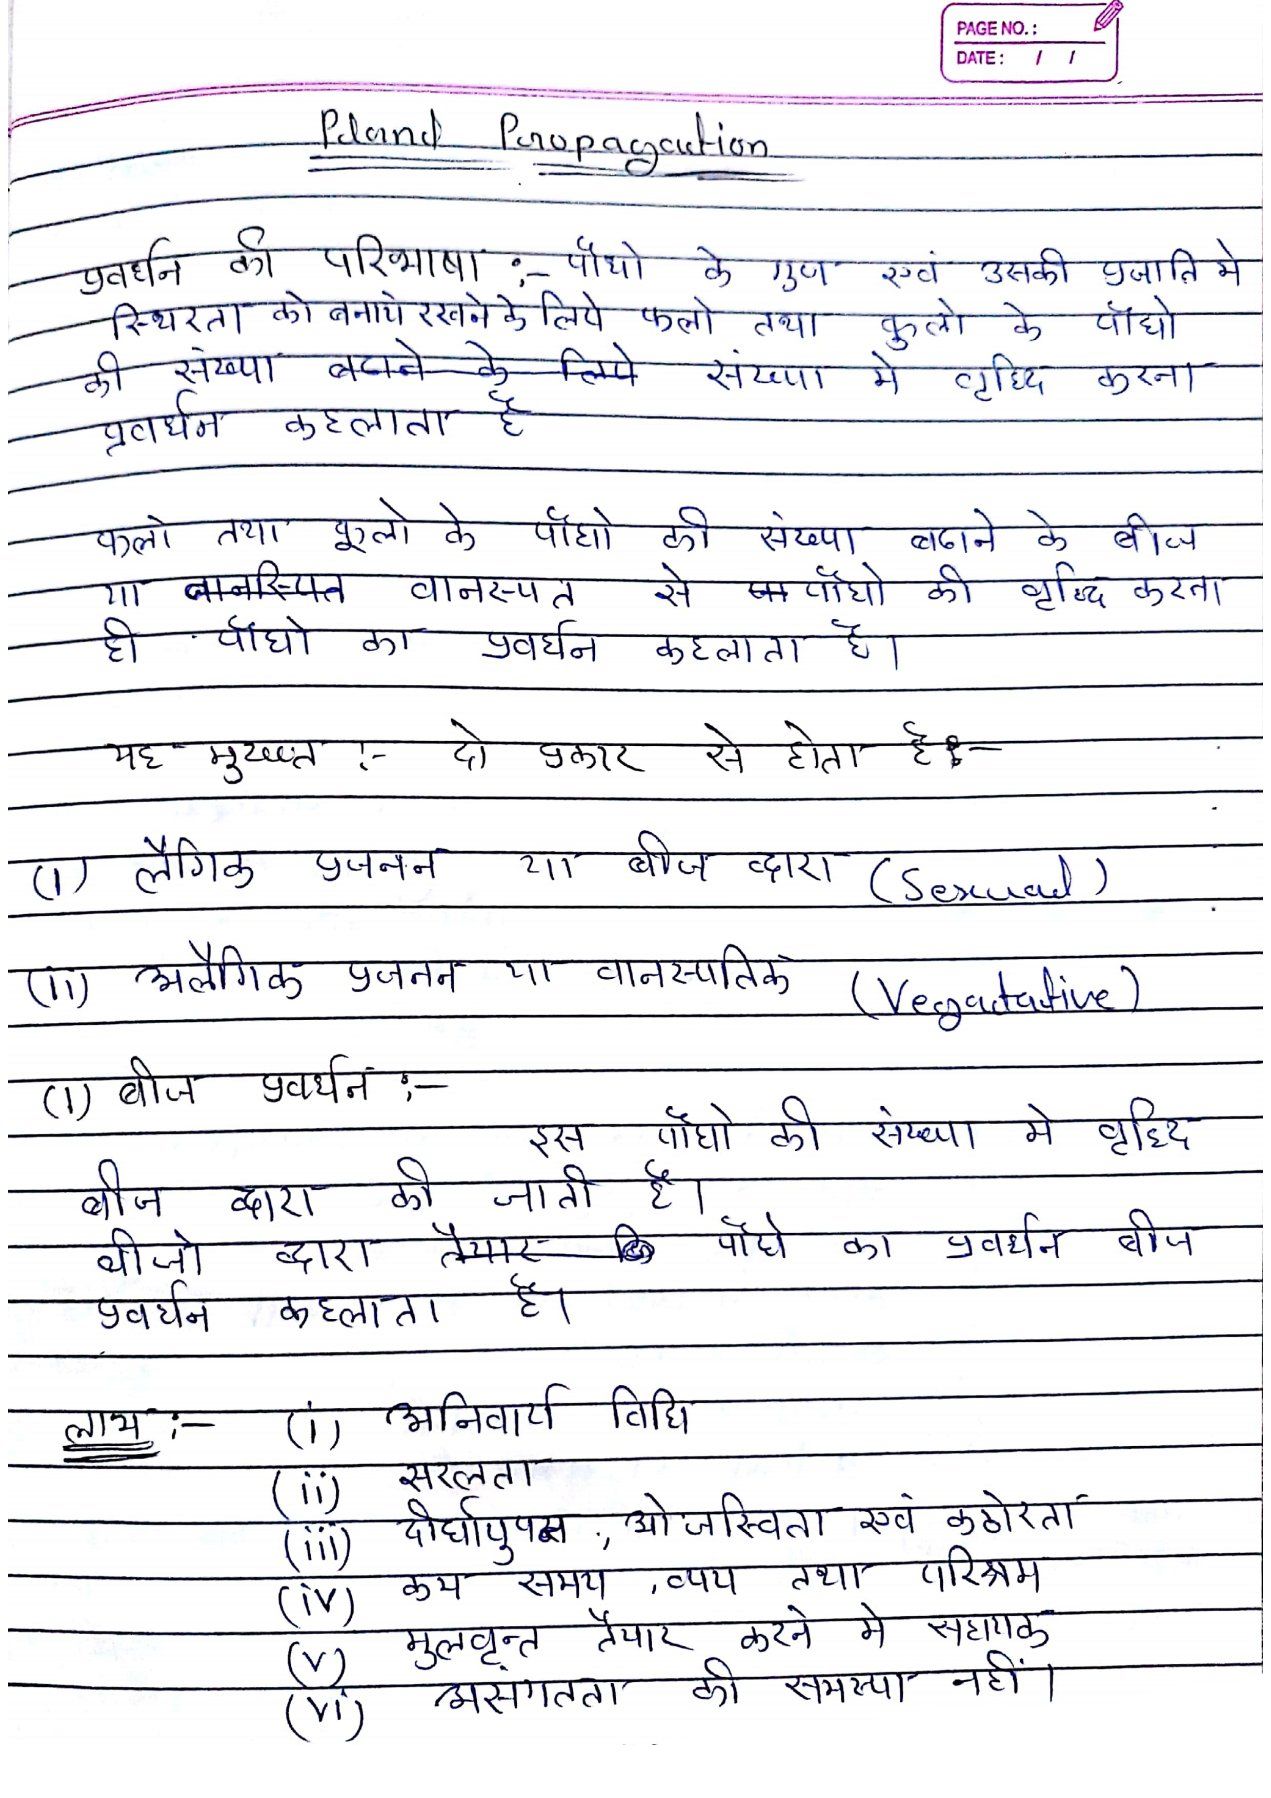 PAGE NO.:
DATE: / /
Pland Propagation
प्रवर्धन की परिभाषा :- पौधो के गुण एवं उसकी प्रजाति मे
स्थिरता को बनाये रखने के लिये फलो तथा फुलो के पौधो
की संख्या बढाने के लिये संख्या मे वृध्दि करना
प्रवर्धन कहलाता है
फलो तथा फूलो के पौधो की संख्या बढाने के बीज
या वानस्पित वानस्पत से पौधो की वृध्दि करता
ही पौधो का प्रवर्धन कहलाता है।
यह मुख्यत :- दो प्रकार से होता है :-
(I) लैगिक प्रजनन या बीज द्वारा (Sexual)
(II) अलैगिक प्रजनन या वानस्पतिक (Vegatative)
(I) बीज प्रवर्धन :-
इस पौधो की संख्या मे वृध्दि
बीज द्वारा की जाती है।
बीजो द्वारा तैयार पौधे का प्रवर्धन बीज
प्रवर्धन कहलाता है।
लाभ :- (i) अनिवार्य विधि
(ii) सरलता
(iii) , ओजस्विता एवं कठोरता
(iv) कम समय , व्यय तथा परिश्रम
(v) मुलवृन्त तैयार करने मे सहायक
(vi) असंगतता की समस्या नहीं।